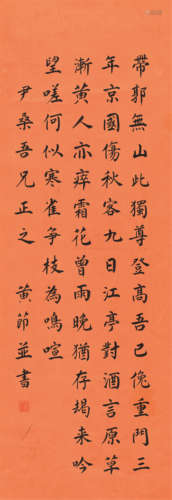 帶郭無山此獨尊登高吾已傀重門三
年京國傷秋客九日江亭對酒言原草
漸黃人亦瘁霜花曾雨晚猶存朅來吟
望嗟何似寒雀爭枝為鳴喧
尹桑吾兄正之 黃節並書